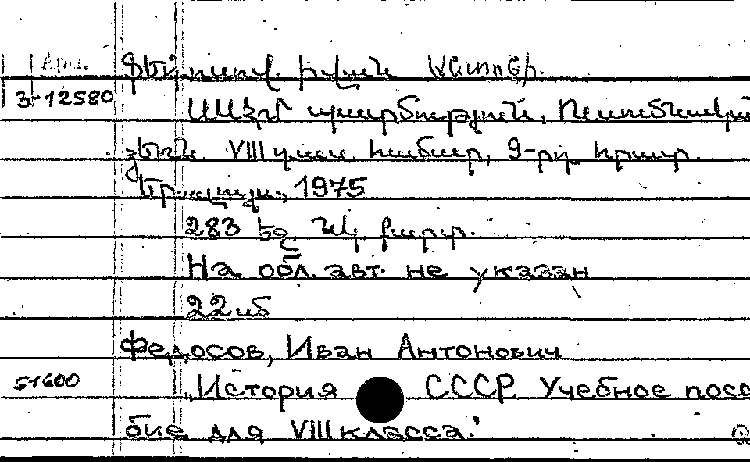 Арм.
Ֆեդոսով, Իվան
3-12580
ՍՍՀՄ պատմություն, Ուսումնական
ձեռն. VIII դաս. համար, 9-րդ հրատ.
Եր., 1975
283 էջ նկ. քարտ.
На обл. авт. не указан
22 կ
Федосов, Иван Антонович
51600
История СССР. Учебное посо
бие для VIII класса.